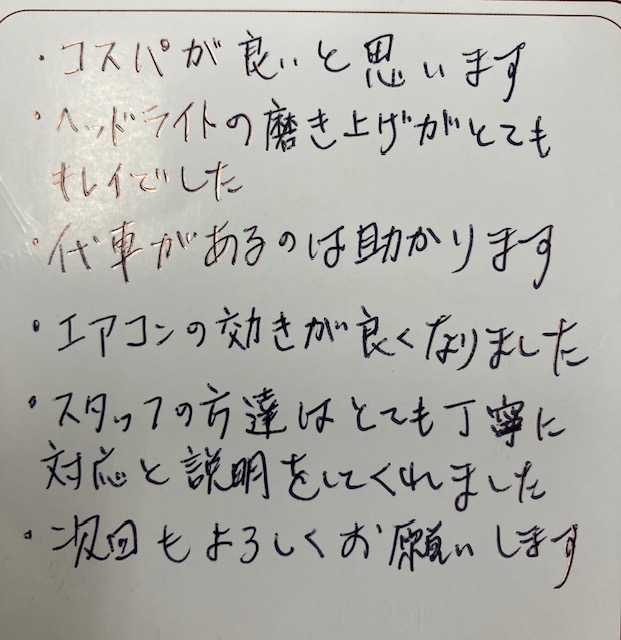 ・コスパが良いと思います
・ヘッドライトの磨き上げがとても
キレイでした
・代車があるのは助かります
・エアコンの効きが良くなりました
・スタッフの方達はとても丁寧に
対応と説明をしてくれました
・次回もよろしくお願いします